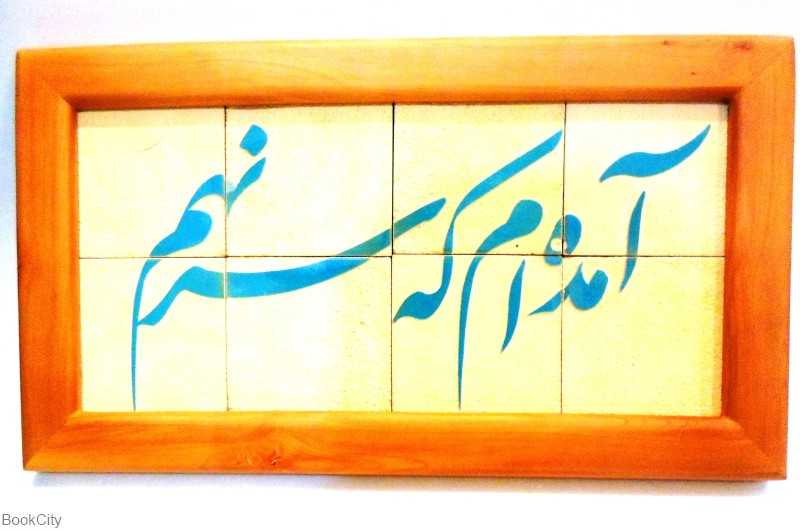 آمده‌ام که سر نهم
BookCity